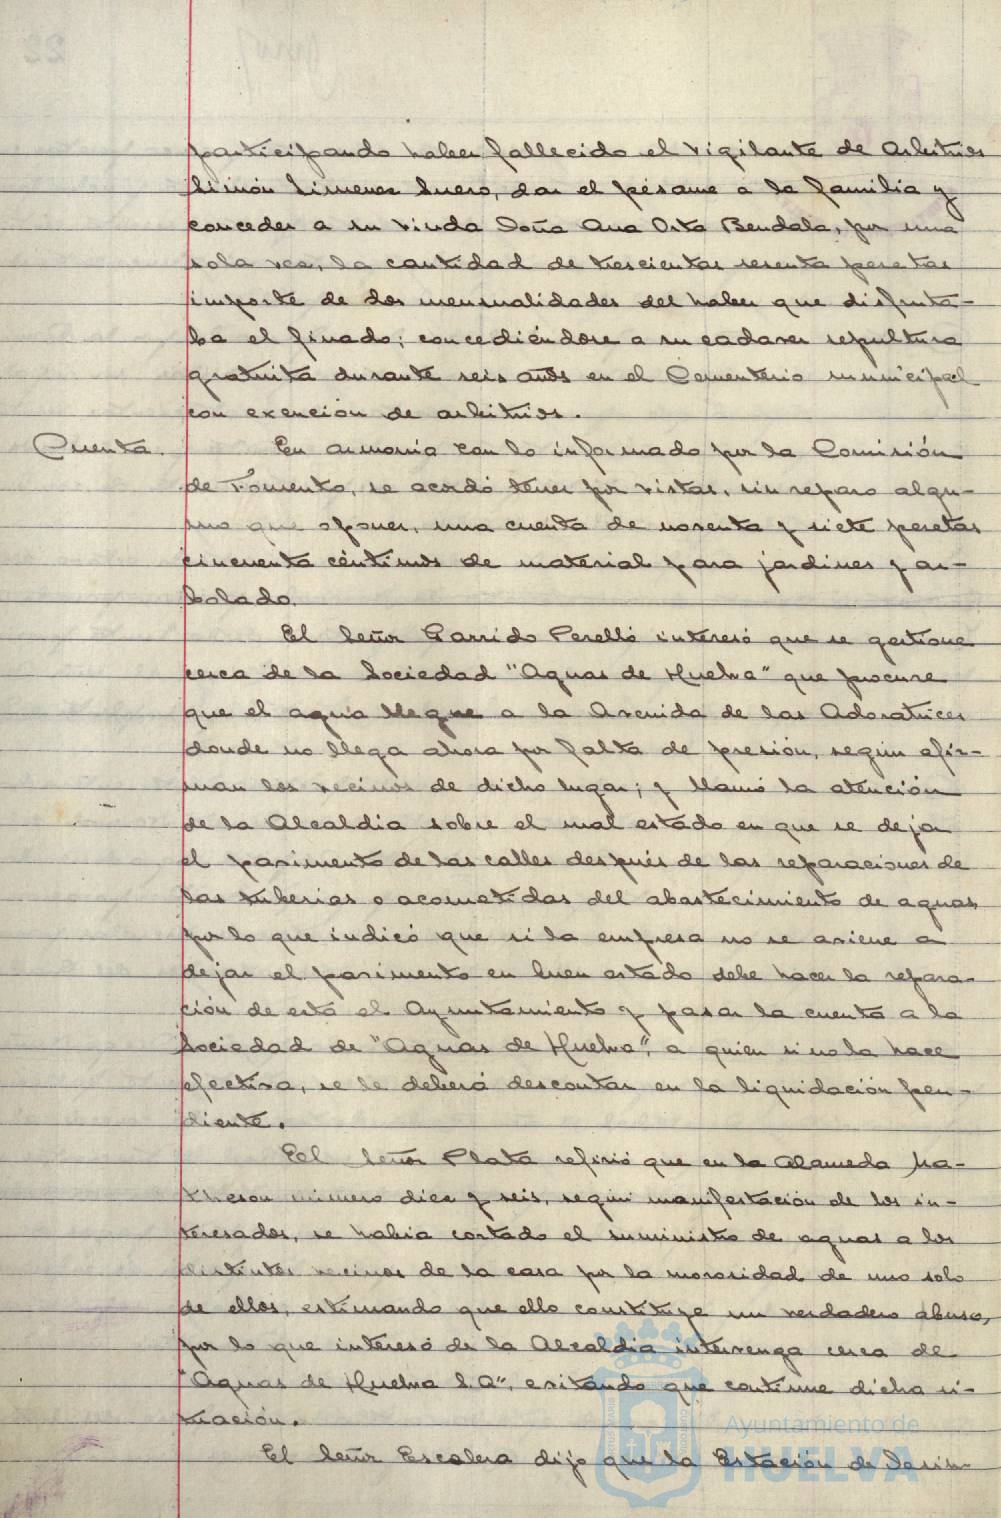 participando haber fallecido el vigilante de Arbitrios
Simón Jimenez Suero, dar el pésame a la familia y
conceder a su viuda Doña Ana Orta Bendala, por una
sola vez, la cantidad de trescientas sesenta pesetas
importe de dos mensualidades del haber que disfruta-
ba el finado; concediéndose a su cadaver sepultura
gratuita durante seis años en el Cementerio municipal
con exención de arbitrios.
Cuenta. En armonia con lo informado por la Comisión
de Fomento, se acordó tener por vistas, sin reparo algu-
no que oponer, una cuenta de noventa y siete pesetas
cincuenta céntimos de material para jardines y ar-
bolado.
El Señor Garrido Perelló interesó que se gestione
cerca de la Sociedad "Aguas de Huelva" que procure
que el agua llegue a la Avenida de las Adoratrices
donde no llega ahora por falta de presión, según afir-
man los vecinos de dicho lugar; y llamó la atención
de la Alcaldia sobre el mal estado en que se dejan
el pavimento de las calles después de las reparaciones de
las tuberias o acometidas del abastecimiento de aguas,
por lo que indicó que si la empresa no se aviene a
dejar el pavimento en buen estado debe hacer la repara-
ción de esto el Ayuntamiento y pasar la cuenta a la
Sociedad de "Aguas de Huelva", a quien si no la hace
efectiva, se le deberá descontar en la liquidación pen-
diente.
El Señor Plata refirió que en la Alameda Ma-
theson número diez y seis, según manifestación de los in-
teresados, se habia cortado el suministro de aguas a los
distintos vecinos de la casa por la morosidad de uno solo
de ellos, estimando que ello constituye un verdadero abuso,
por lo que interesó de la Alcaldia intervenga cerca de
"Aguas de Huelva S.A", evitando que continue dicha si-
tuación.
El Señor Escalera dijo que la Estación de Desin-
Ayuntamiento de
HUELVA